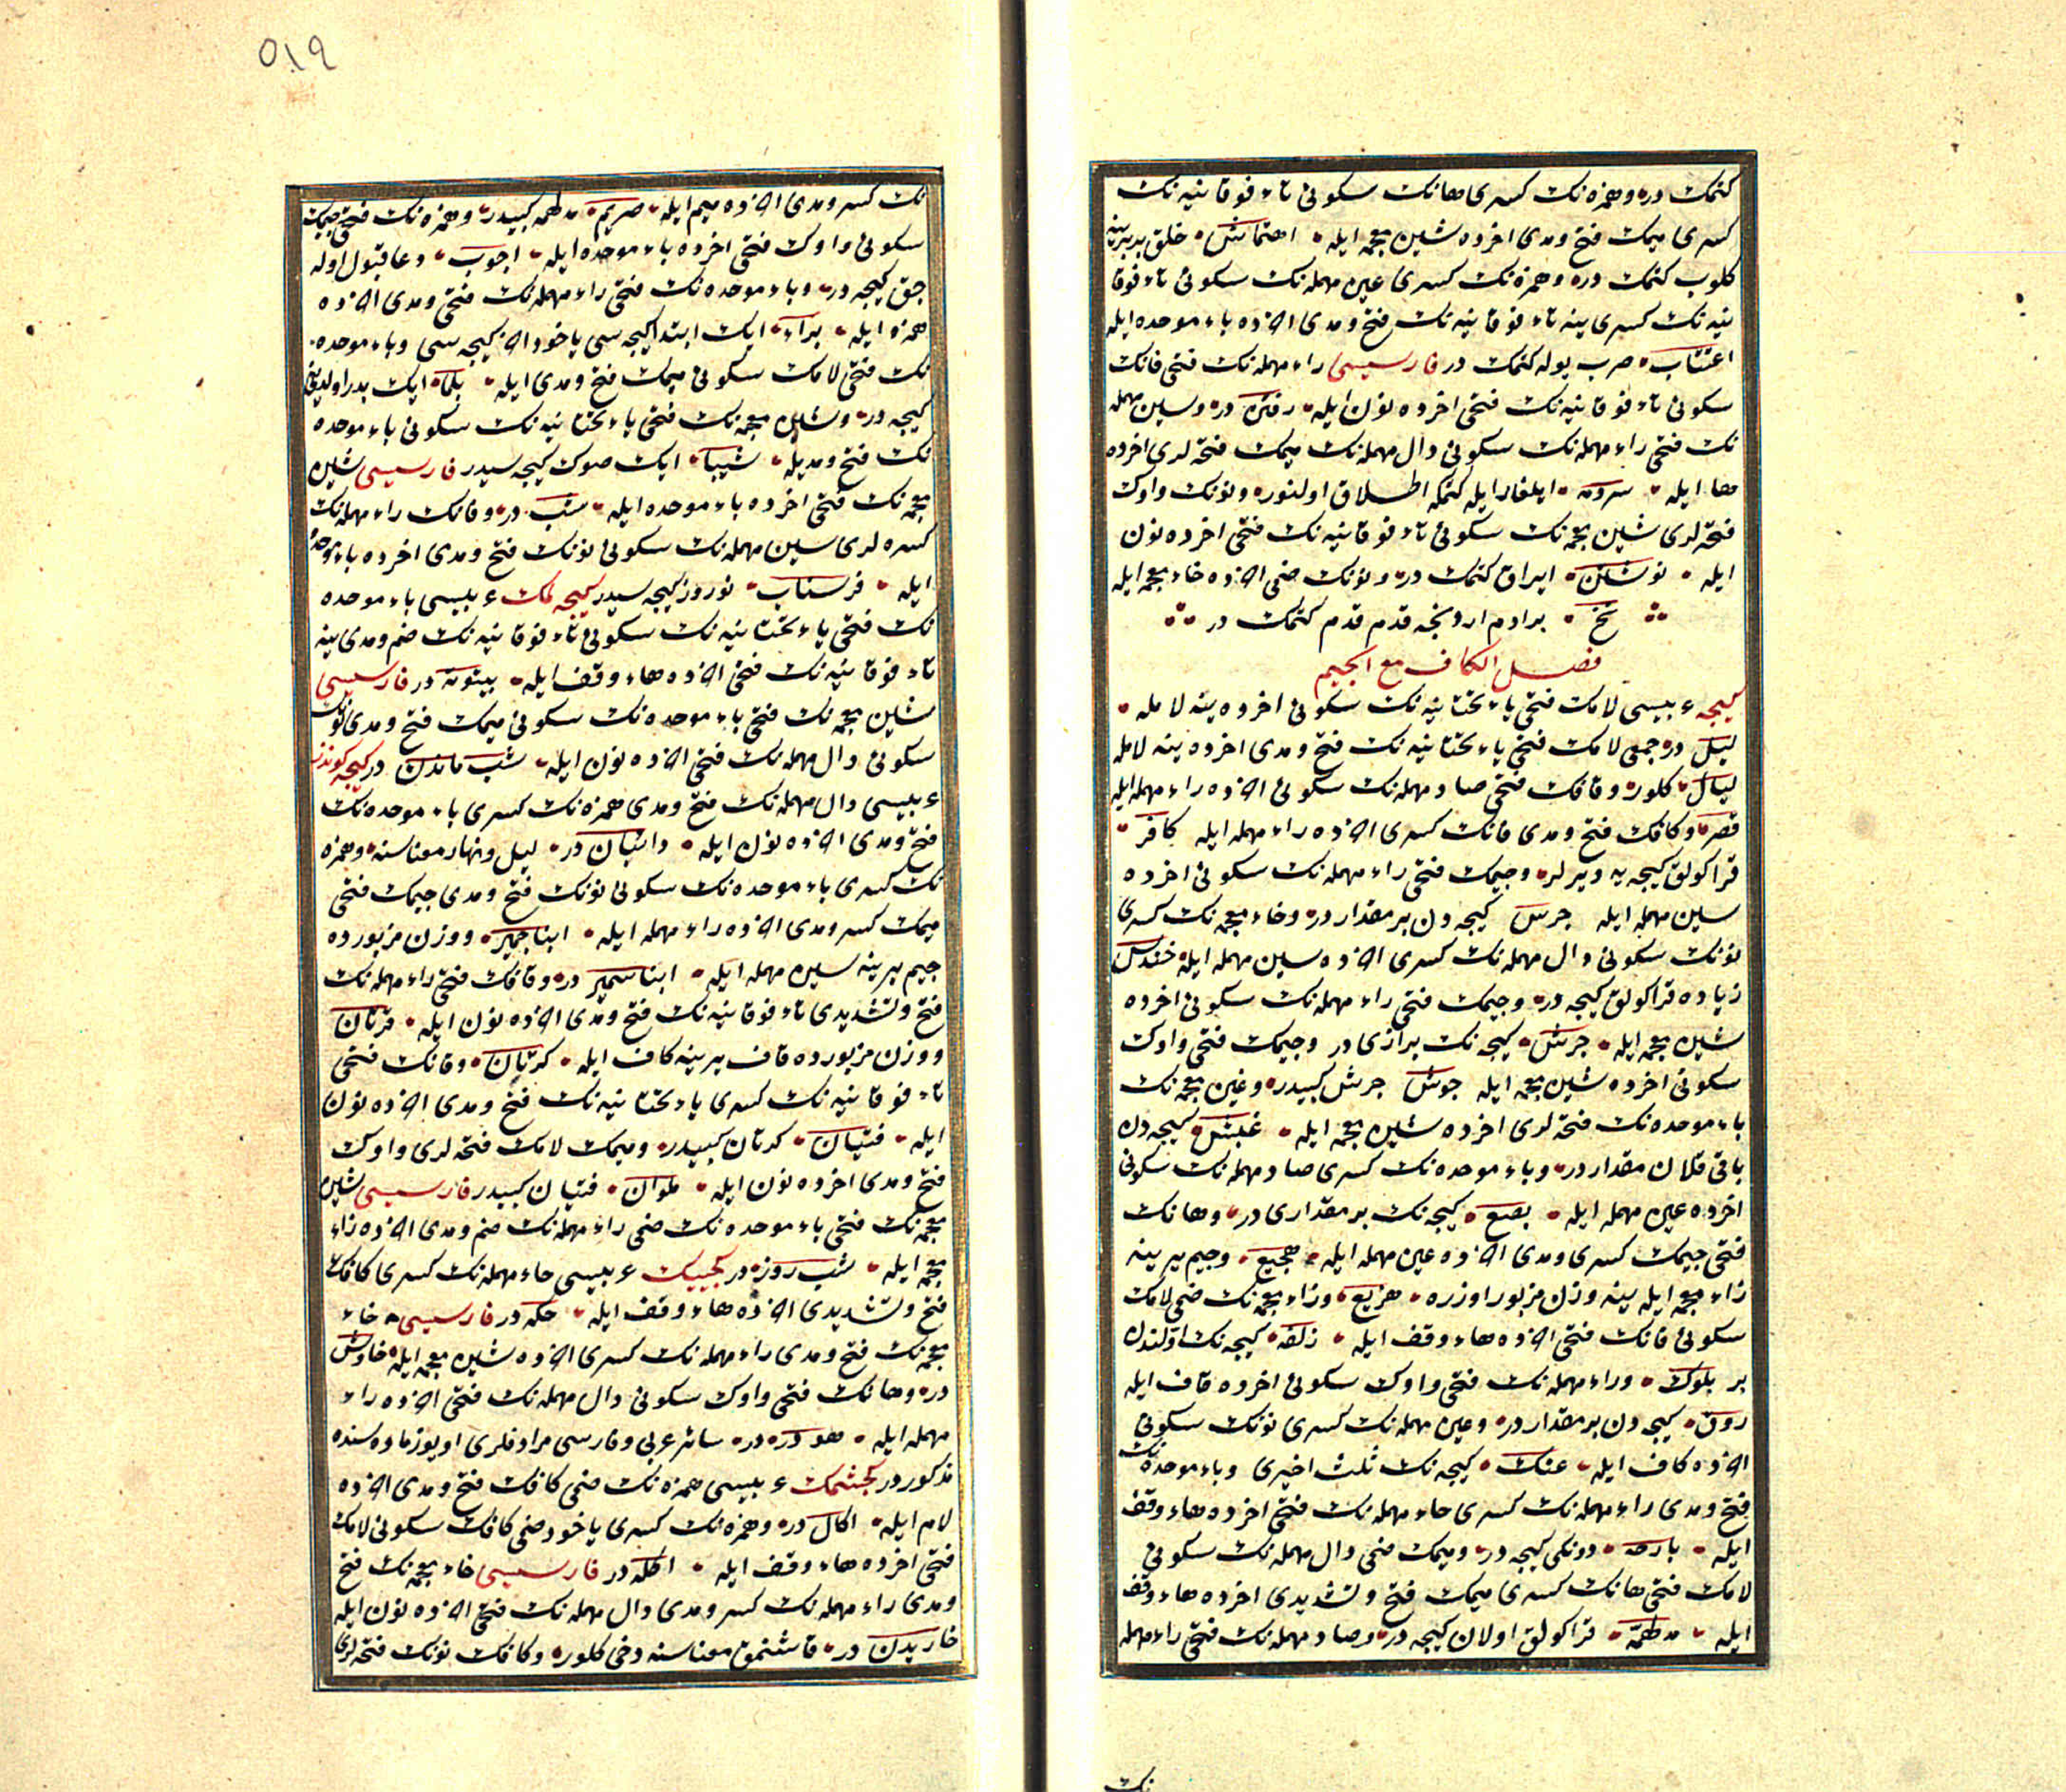 كتمك در وهمزه نك كسرى هانك سكونى تاء فوقانيه نك
كسرى ميمك فتح ومدى اخرده شين معجمه ايله اهتماش خلق بربرينه
كلوب كتمك در وهمزه نك كسرى عين مهمله نك سكونى تاء فوقا
نيه نك كسرى ينه تاء فوقانيه نك فتح ومدى اخرده باء موحده ايله
اعتتاب صرب يوله كتمك در فارسيسى راء مهمله نك فتحى فانك
سكونى تاء فوقانيه نك فتحى اخرده نون ايله رفتن در وسين مهمله
نك فتحى راء مهمله نك سكونى دال مهمله نك ميمك فتحه لرى اخرده
ها ايله ايلغار ايله كتمكه اطلاق اولنور ونونك واوك
فتحه لرى شين معجمه نك سكونى تاء فوقانيه نك فتحى اخرده نون
ايله نوشتن ايراق كتمك در ونونك ضمى اخرده خاء معجمه ايله
نخ برادم اردنجه قدم قدم كتمك در
فصل الكاف مع الجيم
كيجه عربيسى لامك فتحى ياء تحتانيه نك سكونى اخرده ينه لامله
ليل در جمعى لامك فتحى ياء تحتانيه نك فتح ومدى اخرده ينه لامله
ليال كلور وقافك فتحى صاد مهمله نك سكونى اخرده راء مهمله ايله
قصر وكافك فتح ومدى فانك كسرى اخرده راء مهمله ايله كافر
قراكولق كيجه يه ديرلر وجيمك فتحى راء مهمله نك سكونى اخرده
سين مهمله ايله جرس كيجه دن بر مقدار در وخاء معجمه نك كسرى
نونك سكونى دال مهمله نك كسرى اخرده سين مهمله ايله خندس
زياده قراكولق كيجه در وجيمك فتحى راء مهمله نك سكونى اخرده
شين معجمه ايله جرش كيجه نك برازى در وجيمك فتحى واوك
سكونى اخرده شين معجمه ايله جوش جرش كبيدر وغين معجمه نك
باء موحده نك فتحه لرى اخرده شين معجمه ايله غبش كيجه دن
باقى قلان مقدار در وباء موحده نك كسرى صاد مهمله نك سكونى
اخرده عين مهمله ايله بصع كيجه نك بر مقدارى در وهانك
فتحى جيمك كسرى ومدى اخرده عين مهمله ايله هجيع وجيم يرينه
زاء معجمه ايله ينه وزن مزبور اوزره هزيع وزاء معجمه نك ضمى لامك
سكونى فانك فتحى اخرده هاء وقف ايله زلفه كيجه نك اولندن
بر بلوك وراء مهمله نك فتحى واوك سكونى اخرده قاف ايله
روق كيجه دن بر مقدار در وعين مهمله نك كسرى نونك سكونى
اخرده كاف ايله عنك كيجه نك ثلث اخيرى وباء موحده نك
فتح ومدى راء مهمله نك كسرى حاء مهمله نك فتحى اخرده هاء وقف
ايله بارحه دونكى كيجه در وميمك ضمى دال مهمله نك سكونى
لامك فتحى هانك كسرى ميمك فتح وتشديدى اخرده هاء وقف
ايله مدلهمه قراكولق اولان كيجه در وصاد مهمله نك فتحى راء مهمله
نك
٥١٩
نك كسر ومدى اخرده ميم ايله صريم مدلهمه كبيدر وهمزه نك فتحى جيمك
سكونى واوك فتحى اخرده باء موحده ايله اجوب دعا قبول اوله
جق كيجه در وباء موحده نك فتحى راء مهمله نك فتحى ومدى اخرده
همزه ايله براء ايك ابتدا كيجه سى ياخود اخر كيجه سى وباء موحده
نك فتحى لامك سكونى ميمك فتح ومدى ايله بلما ايك بدر اولديغى
كيجه در وشين معجمه نك فتحى ياء تحتانيه نك سكونى باء موحده
نك فتح ومديله شيبا ايك صوك كيجه سيدر فارسيسى شين
معجمه نك فتحى اخرده باء موحده ايله شب در وفانك راء مهمله نك
كسره لرى سين مهمله نك سكونى نونك فتح ومدى اخرده باء موحده
ايله فرسناب نوروز كيجه سيدر كيجه لمك عربيسى باء موحده
نك فتحى ياء تحتانيه نك سكونى تاء فوقانيه نك ضم ومدى ينه
تاء فوقانيه نك فتحى اخرده هاء وقف ايله بيتوته در فارسيسى
شين معجمه نك فتحى باء موحده نك سكونى ميمك فتح ومدى نونك
سكونى دال مهمله نك فتحى اخرده نون ايله شب ماندن در كيجه كوندز
عربيسى دال مهمله نك فتح ومدى همزه نك كسرى باء موحده نك
فتح ومدى اخرده نون ايله دائبان در ليل ونهار معناسنه وهمزه
نك كسرى باء موحده نك سكونى نونك فتح ومدى جيمك فتحى
ميمك كسر ومدى اخرده راء مهمله ايله ابنا جمير ووزن مزبورده
جيم يرينه سين مهمله ايله ابنا سمير در وقافك فتحى راء مهمله نك
فتح وتشديدى تاء فوقانيه نك فتح ومدى اخرده نون ايله قرتان
ووزن مزبورده قاف يرينه كاف ايله كرتان وفانك فتحى
تاء فوقانيه نك كسرى ياء تحتانيه نك فتح ومدى اخرده نون
ايله فتيان كرتان كبيدر وميمك لامك فتحه لرى واوك
فتح ومدى اخرده نون ايله ملوان فتيان كبيدر فارسيسى شين
معجمه نك فتحى باء موحده نك ضمى راء مهمله نك ضم ومدى اخرده زاء
معجمه ايله شب روز در كجيك عربيسى حاء مهمله نك كسرى كافك
فتح وتشديدى اخرده هاء وقف ايله حكه در فارسيسى خاء
معجمه نك فتح ومدى راء مهمله نك كسرى اخرده شين معجمه ايله خارش
در وهانك فتحى واوك سكونى دال مهمله نك فتحى اخرده راء
مهمله ايله هودره در سائر عربى وفارسى مرادفلرى اويوز ماده سنده
مذكور در كجشمك عربيسى همزه نك ضمى كافك فتح ومدى اخرده
لام ايله اكال در وهمزه نك كسرى ياخود ضمى كافك سكونى لامك
فتحى اخرده هاء وقف ايله اكله در فارسيسى خاء معجمه نك فتح
ومدى راء مهمله نك كسر ومدى دال مهمله نك فتحى اخرده نون ايله
خاريدن در قاشنمق معناسنه دخى كلور وكافك نونك فتحه لرى